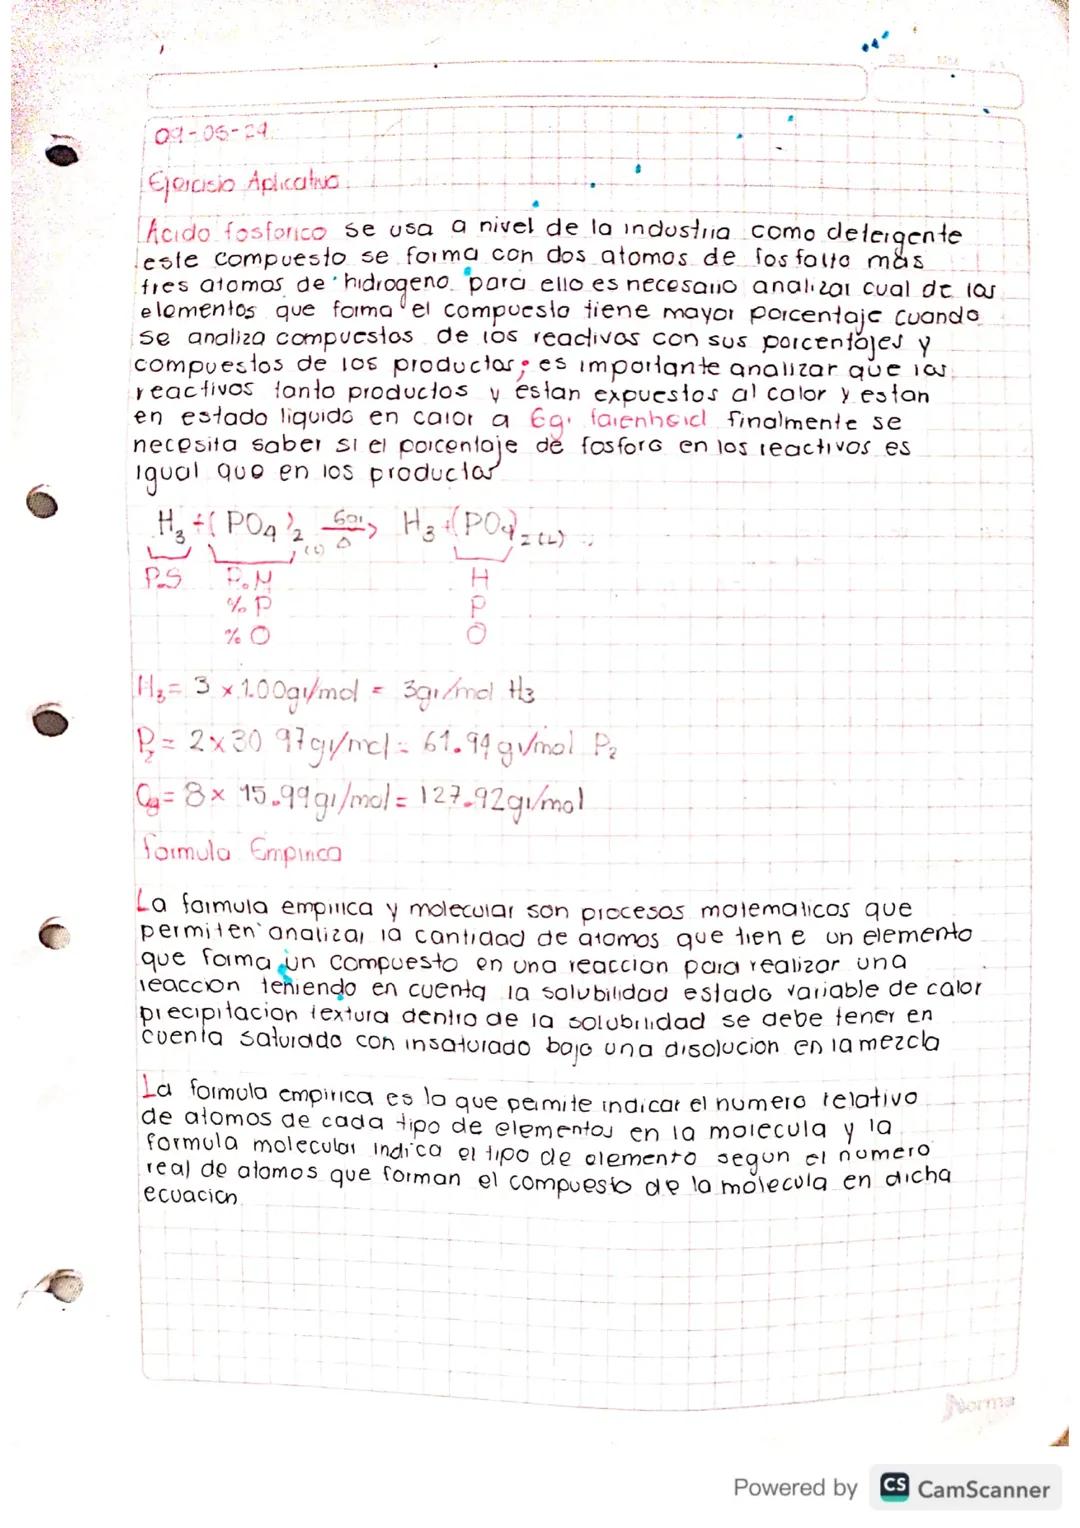 09-05-24
Ejercisio Aplicativo
Acido fosforico se usa a nivel de la industria como detergente
este compuesto se forma con dos atomos de fosfolto mas
tres atomos de hidrogeno para ello es necesario analizar cual de las
elementos que forma el compuesto tiene mayor porcentaje cuando
se analiza compuestos de los reactivos con sus porcentajes y
compuestos de los productos; es importante analizar que los
reactivos tanto productos y estan expuestos al calor y estan
en estado liquido en calor a farenheid finalmente se
necesita saber si el porcentaje de fosforo en los reactivos es
igual que en los productos
H3 + (PO4)2 (l) Δ → H3 + (PO4)2(L)
P.S P.M H
% P P
% O O
H3 = 3 x 1.00gr/mol = 3gr/mol H3
P2 = 2x30.97gr/mol = 61.94 gr/mol P2
O8 = 8x 15.99gr/mol = 127.92gr/mol
formula Empirica
La formula empirica y molecular son procesos matematicos que
permiten analizar la cantidad de atomos que tiene un elemento
que forma un compuesto en una reaccion para realizar una
reaccion teniendo en cuenta la solubilidad estado variable de calor
precipitacion textura dentro de la solubilidad se debe tener en
cuenta saturado con insaturado bajo una disolucion en la mezcla
La formula empirica es lo que permite indicar el numero relativo
de atomos de cada tipo de elementos en la molecula y la
formula molecular indica el tipo de elemento segun el numero
real de atomos que forman el compuesto de la molecula en dicha
ecuacion
Norma
Powered by CS CamScanner